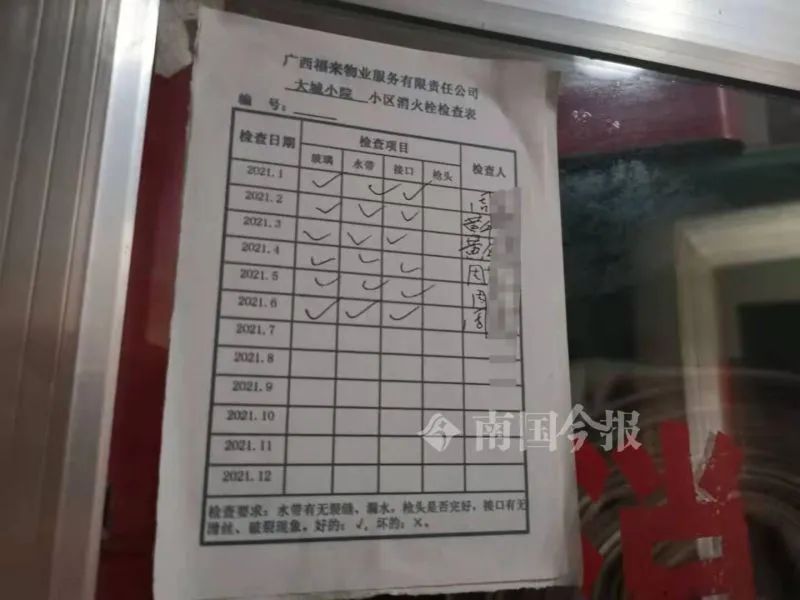 广西福来物业服务有限责任公司
大城小院 小区消火栓检查表
编 号：
检查日期 检查项目 检查人
玻璃 水带 接口 枪头
2021.1 ✓ ✓ ✓
2021.2 ✓ ✓ ✓
2021.3 ✓ ✓ ✓ 黄
2021.4 ✓ ✓ ✓ 黄
2021.5 ✓ ✓ ✓
2021.6 ✓ ✓ ✓
2021.7
2021.8
2021.9
2021.10
2021.11
2021.12
检查要求：水带有无裂缝、漏水，枪头是否完好，接口有无
滑丝、破裂现象。好的：√，坏的：×。
南国今报
消